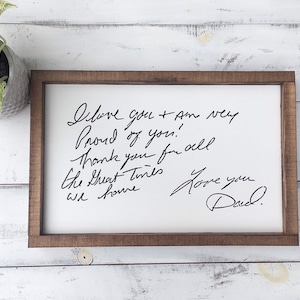 I love you + am very
Proud of you!
Thank you for all
the Great Times
we have
Love you
Dad.